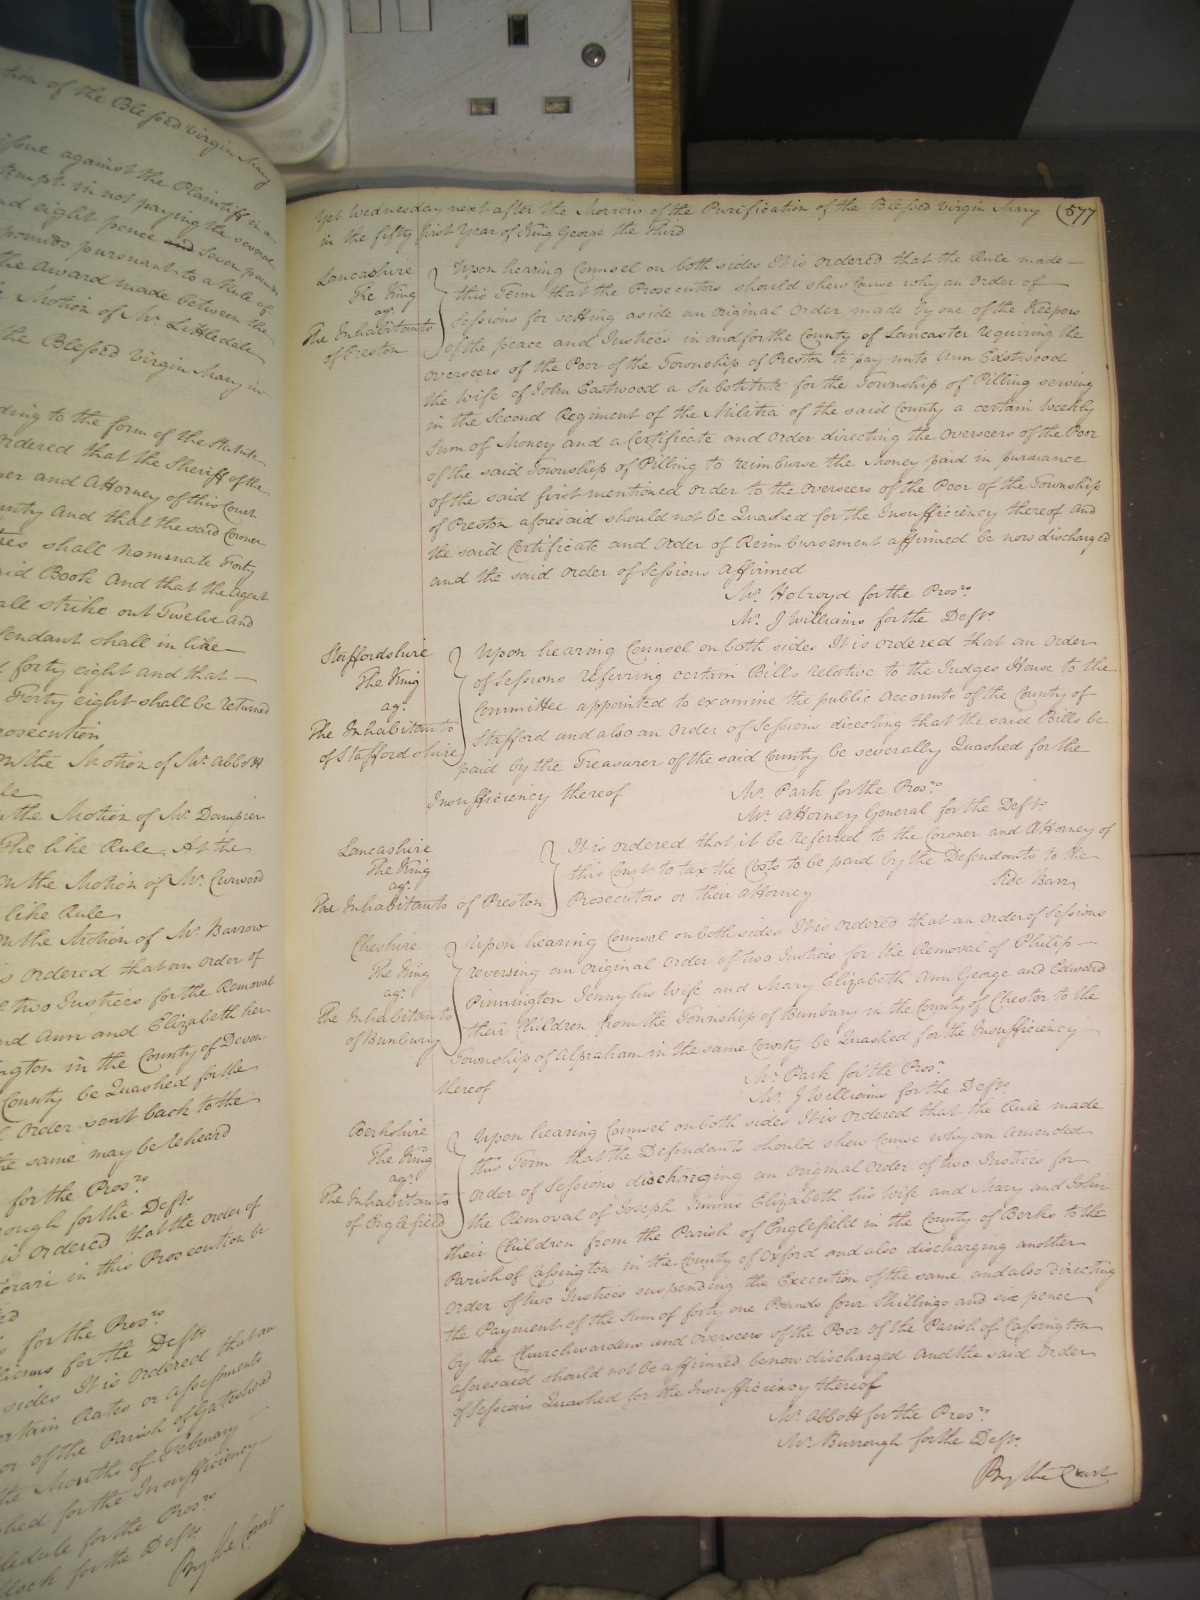 tion of the Blessed Virgin Mary
issue against the Plaintiff in a
tempt in not paying the several
nd eight pence and Seven pounds
pounds pursuant to a Rule of
the Award made between the
Motion of Mr. Littledale
the Blessed Virgin Mary in
ding to the form of the Statute
ordered that the Sheriff of the
ner and Attorney of this Court
unty And that the said Coroner
tes shall nominate Forty
aid Book And that the Agent
all strike out Twelve and
fendant shall in like
forty eight and that
Forty eight shall be returned
rosecution
on the Motion of Mr. Abbott
le
the Motion of Mr. Dampier
The like Rule At the
On the Motion of Mr. Curwood
like Rule
On the Motion of Mr. Barrow
is Ordered that an Order of
two Justices for the Removal
nd Ann and Elizabeth her
ngton in the County of Devon
County be Quashed for the
Order sent back to the
the same may be reheard
for the Prosrs
rough for the Defts
is Ordered that the Order of
torari in this Prosecution be
ed
for the Prosrs
liams for the Defts
sides It is Ordered that an
rtain Rates or Assessments
or of the Parish of Gateshead
the Months of February
shed for the Insufficiency
ledale for the Prosrs
llock for the Defts
By the Court
Yet Wednesday next after the Morrow of the Purification of the Blessed Virgin Mary 577
in the fifty first Year of King George the Third
Lancashire
The King
agt
The Inhabitants
of Preston
Upon hearing Counsel on both sides It is ordered that the Rule made
this Term that the Prosecutors should shew Cause why an Order of
Sessions for setting aside an Original Order made by one of the Keepers
of the peace and Justices in and for the County of Lancaster requiring the
overseers of the Poor of the Township of Preston to pay unto Ann Eastwood
the Wife of John Eastwood a Substitute for the Township of Pilling serving
in the Second Regiment of the Militia of the said County a certain Weekly
Sum of Money and a Certificate and Order directing the Overseers of the Poor
of the said Township of Pilling to reimburse the Money paid in pursuance
of the said first mentioned Order to the Overseers of the Poor of the Township
of Preston aforesaid should not be Quashed for the Insufficiency thereof And
the said Certificate and Order of Reimbursement affirmed be now discharged
and the said Order of Sessions Affirmed
Mr. Holroyd for the Prosrs
Mr. J Williams for the Defts
Staffordshire
The King
agt
The Inhabitants
of Staffordshire
Upon hearing Counsel on both sides It is ordered that an Order
of Sessions referring certain Bills relative to the Judges House to the
Committee appointed to examine the public Accounts of the County of
Stafford and also an Order of Sessions directing that the said Bills be
paid by the Treasurer of the said County be severally Quashed for the
Insufficiency thereof
Mr. Park for the Prosrs
Mr. Attorney General for the Defts
Lancashire
The King
agt
The Inhabitants of Preston
It is ordered that it be referred to the Coroner and Attorney of
this Court to tax the Costs to be paid by the Defendants to the
Prosecutors or their Attorney
Side Barr
Cheshire
The King
agt
The Inhabitants
of Bunbury
Upon hearing Counsel on both sides It is ordered that an Order of Sessions
reversing an Original Order of two Justices for the Removal of Philip
Pinnington Jenny his Wife and Mary Elizabeth Ann George and Edward
their Children from the Township of Bunbury in the County of Chester to the
Township of Alpraham in the same County be Quashed for the Insufficiency
thereof
Mr. Park for the Prosr
Mr. J Williams for the Defts
Berkshire
The King
agt
The Inhabitants
of Englefield
Upon hearing Counsel on both sides It is ordered that the Rule made
this Term that the Defendants should shew Cause why an Amended
Order of Sessions discharging an Original Order of two Justices for
the Removal of Joseph Timms Elizabeth his Wife and Mary and John
their Children from the Parish of Englefield in the County of Berks to the
Parish of Cassington in the County of Oxford and also discharging another
Order of two Justices suspending the Execution of the same and also Directing
the Payment of the Sum of forty one Pounds four Shillings and six pence
by the Churchwardens and Overseers of the Poor of the Parish of Cassington
aforesaid should not be affirmed be now discharged And the said Order
of Sessions Quashed for the Insufficiency thereof
Mr. Abbott for the Prosrs
Mr. Burrough for the Defts
By the Court